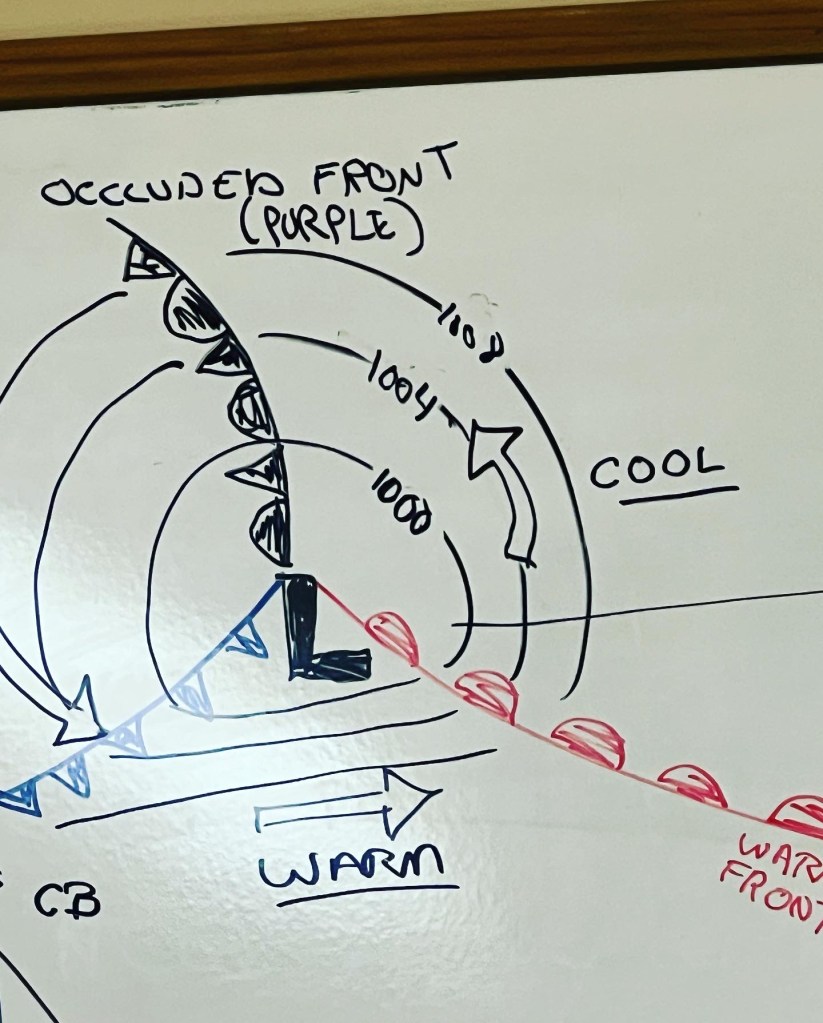 OCCLUDED FRONT
(PURPLE)
1008
1004
1000
COOL
L
WARM
WAR
FRONT
CB